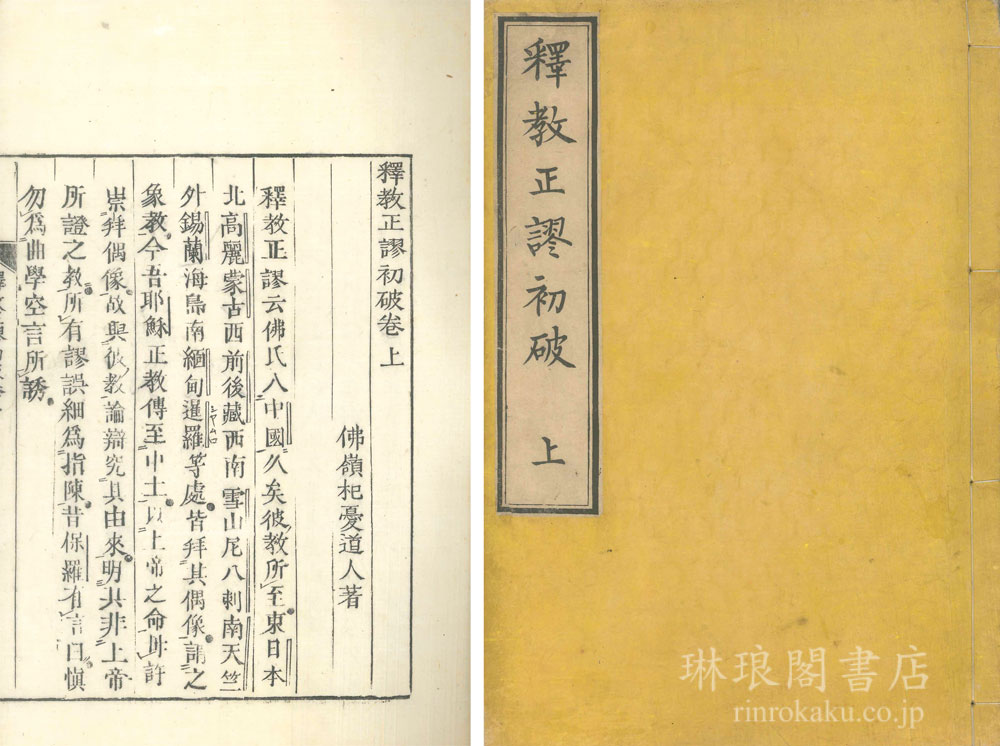 釋教正謬初破 上
釋教正謬初破卷上
佛嶺杞憂道人著
釋教正謬云佛氏入中國久矣彼教所至東日本
北高麗蒙古西前後藏西南雪山尼八剌南天竺
外錫蘭海島南緬甸暹羅等處皆拜其偶像謂之
象教今吾耶穌正教傳至中土以上帝之命毋許
崇拜偶像故與彼教論辯究其由來明其非上帝
所證之教所有謬誤細爲指陳昔保羅有言曰愼
勿爲曲學空言所誘
琳琅閣書店
rinrokaku.co.jp